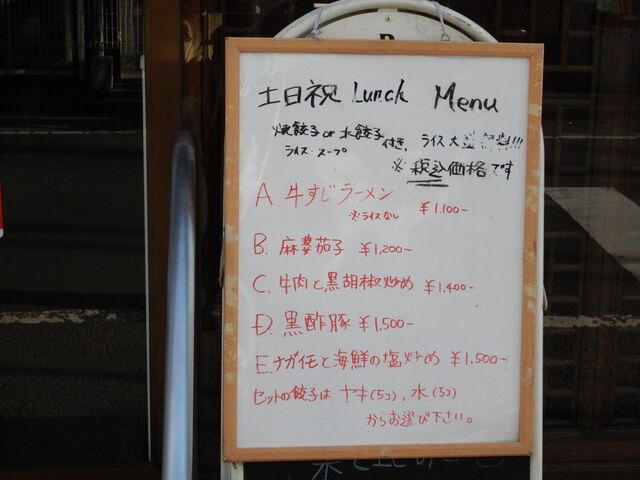 土日祝 Lunch Menu
焼餃子 or 水餃子
ライス スープ 付き。
ライス大盛無料!!!
※税込価格です
A. 牛すじラーメン ¥1,100-
※ライスなし
B. 麻婆茄子 ¥1,200-
C. 牛肉と黒胡椒炒め ¥1,400-
D. 黒酢豚 ¥1,500-
E. ナガイモと海鮮の塩炒め ¥1,500-
セットの餃子は ヤキ(5コ), 水(5コ)
からお選び下さい。